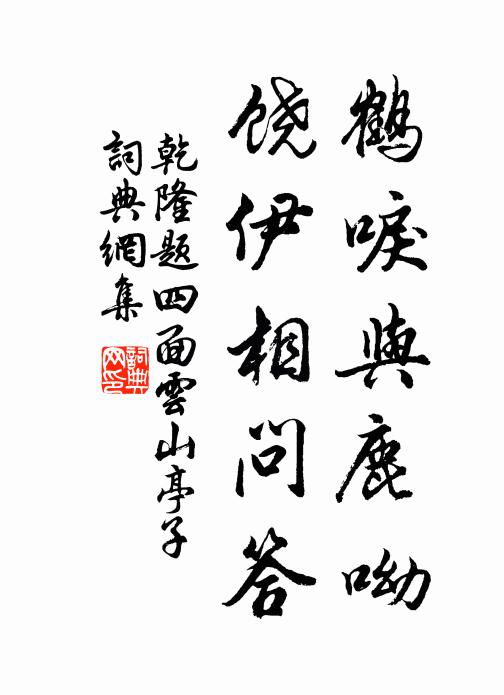 鶴唳與鹿呦
饒伊相問答
乾隆題四面雲山亭子
詞典網集
詞典
网印